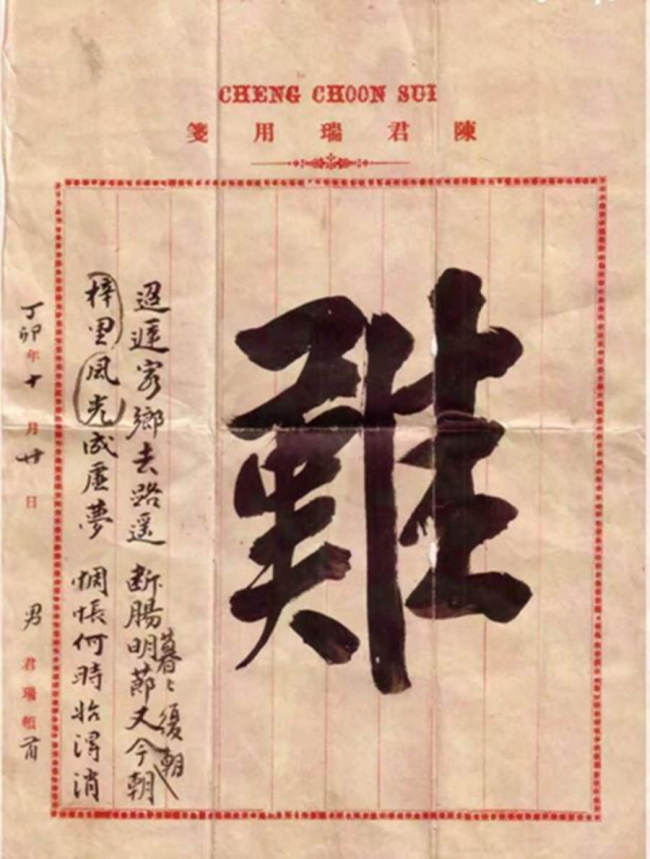 CHENG CHOON SUI
陳君瑞用箋
難
迢遞客鄉去路遥 断腸明節又今朝
暮〻復朝
梓里風光成虛夢 惆悵何時始得消
丁卯年十月廿日 男 君瑞頓首